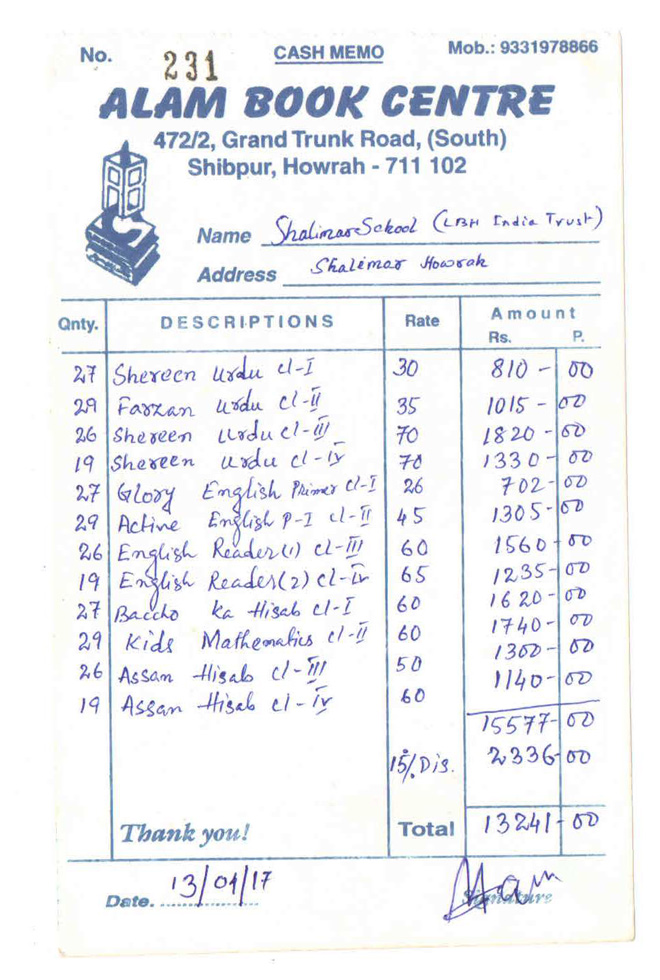 No. 231 CASH MEMO Mob.: 9331978866
ALAM BOOK CENTRE
472/2, Grand Trunk Road, (South)
Shibpur, Howrah - 711 102
Name Shalimar School (LBH India Trust)
Address Shalimar Howrah
Qnty. DESCRIPTIONS Rate Amount
Rs. P.
27 Shereen Urdu cl-I 30 810 - 00
29 Farzan Urdu cl-II 35 1015 - 00
26 Shereen Urdu cl-III 70 1820 - 00
19 Shereen Urdu cl-IV 70 1330 - 00
27 Glory English Primer cl-I 26 702 - 00
29 Active English P-I cl-II 45 1305 - 00
26 English Reader(1) cl-III 60 1560 - 00
19 English Reader(2) cl-IV 65 1235 - 00
27 Baccho ka Hisab cl-I 60 1620 - 00
29 Kids Mathematics cl-II 60 1740 - 00
26 Assan Hisab cl-III 50 1300 - 00
19 Assan Hisab cl-IV 60 1140 - 00
15577 - 00
15% Dis. 2336 - 00
Thank you! Total 13241 - 00
Date. 13/01/17 Signature